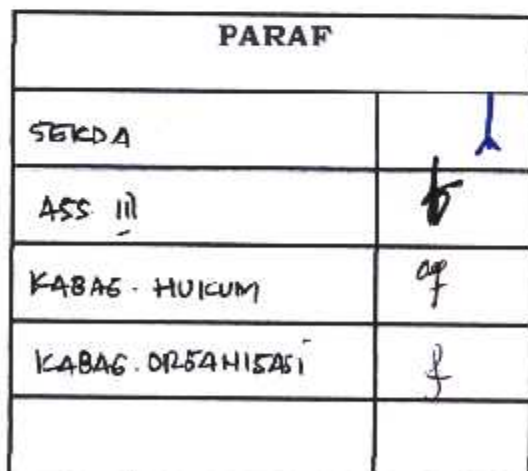 PARAF
SEKDA
ASS III
KABAG. HUKUM
KABAG. ORGANISASI